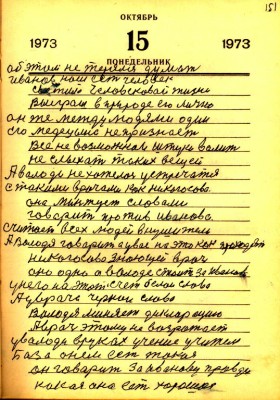 151
ОКТЯБРЬ
1973 15 1973
ПОНЕДЕЛЬНИК
об этом не терялся думать
Иванов наш сет человек
Человеской жизнь
Выеграш в природе его лично
он же между людями один
его медецина непризнает
Всё не возможная штуко валит
не слыхат таких вещей
А Валоди нехотелос устречатся
с такими врачами как никогосова
она мантует словами
говарит против иванова
считает всех людей внушители
А Валодя говарит а увас на это как
никогосово знающей врач
оно одно а валоде стоит за Иванова
унего на этот счет белои слова
А уврача чернои слово
Валодя миняет дикларацию
А врач этому не возротает
увалоди вруках учение учителя
База онем сет такая
он говарит За Иванову правду
какая она сет хорошая